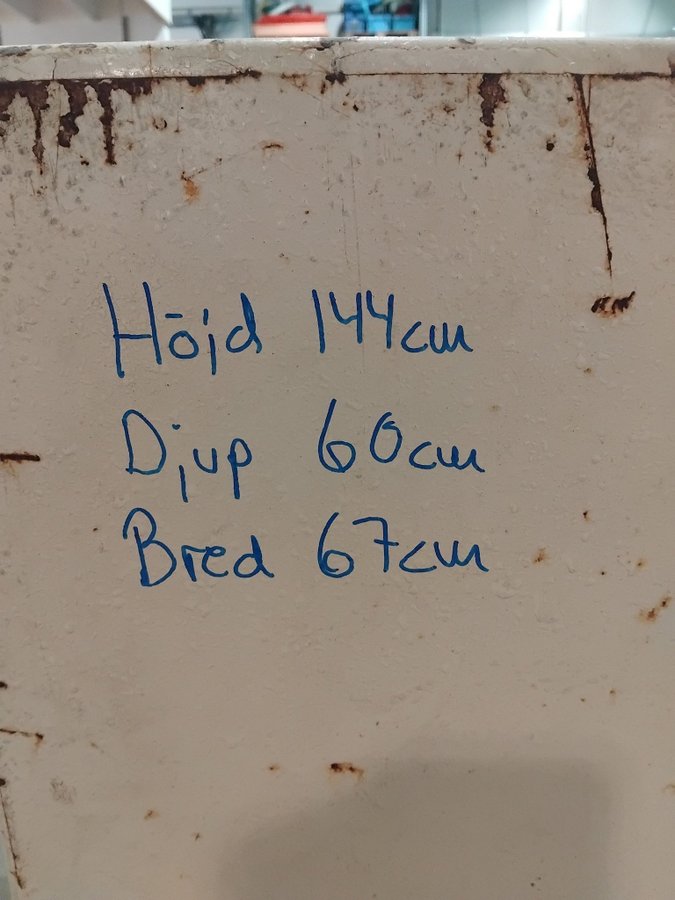 Höjd 144cm
Djup 60cm
Bred 67cm